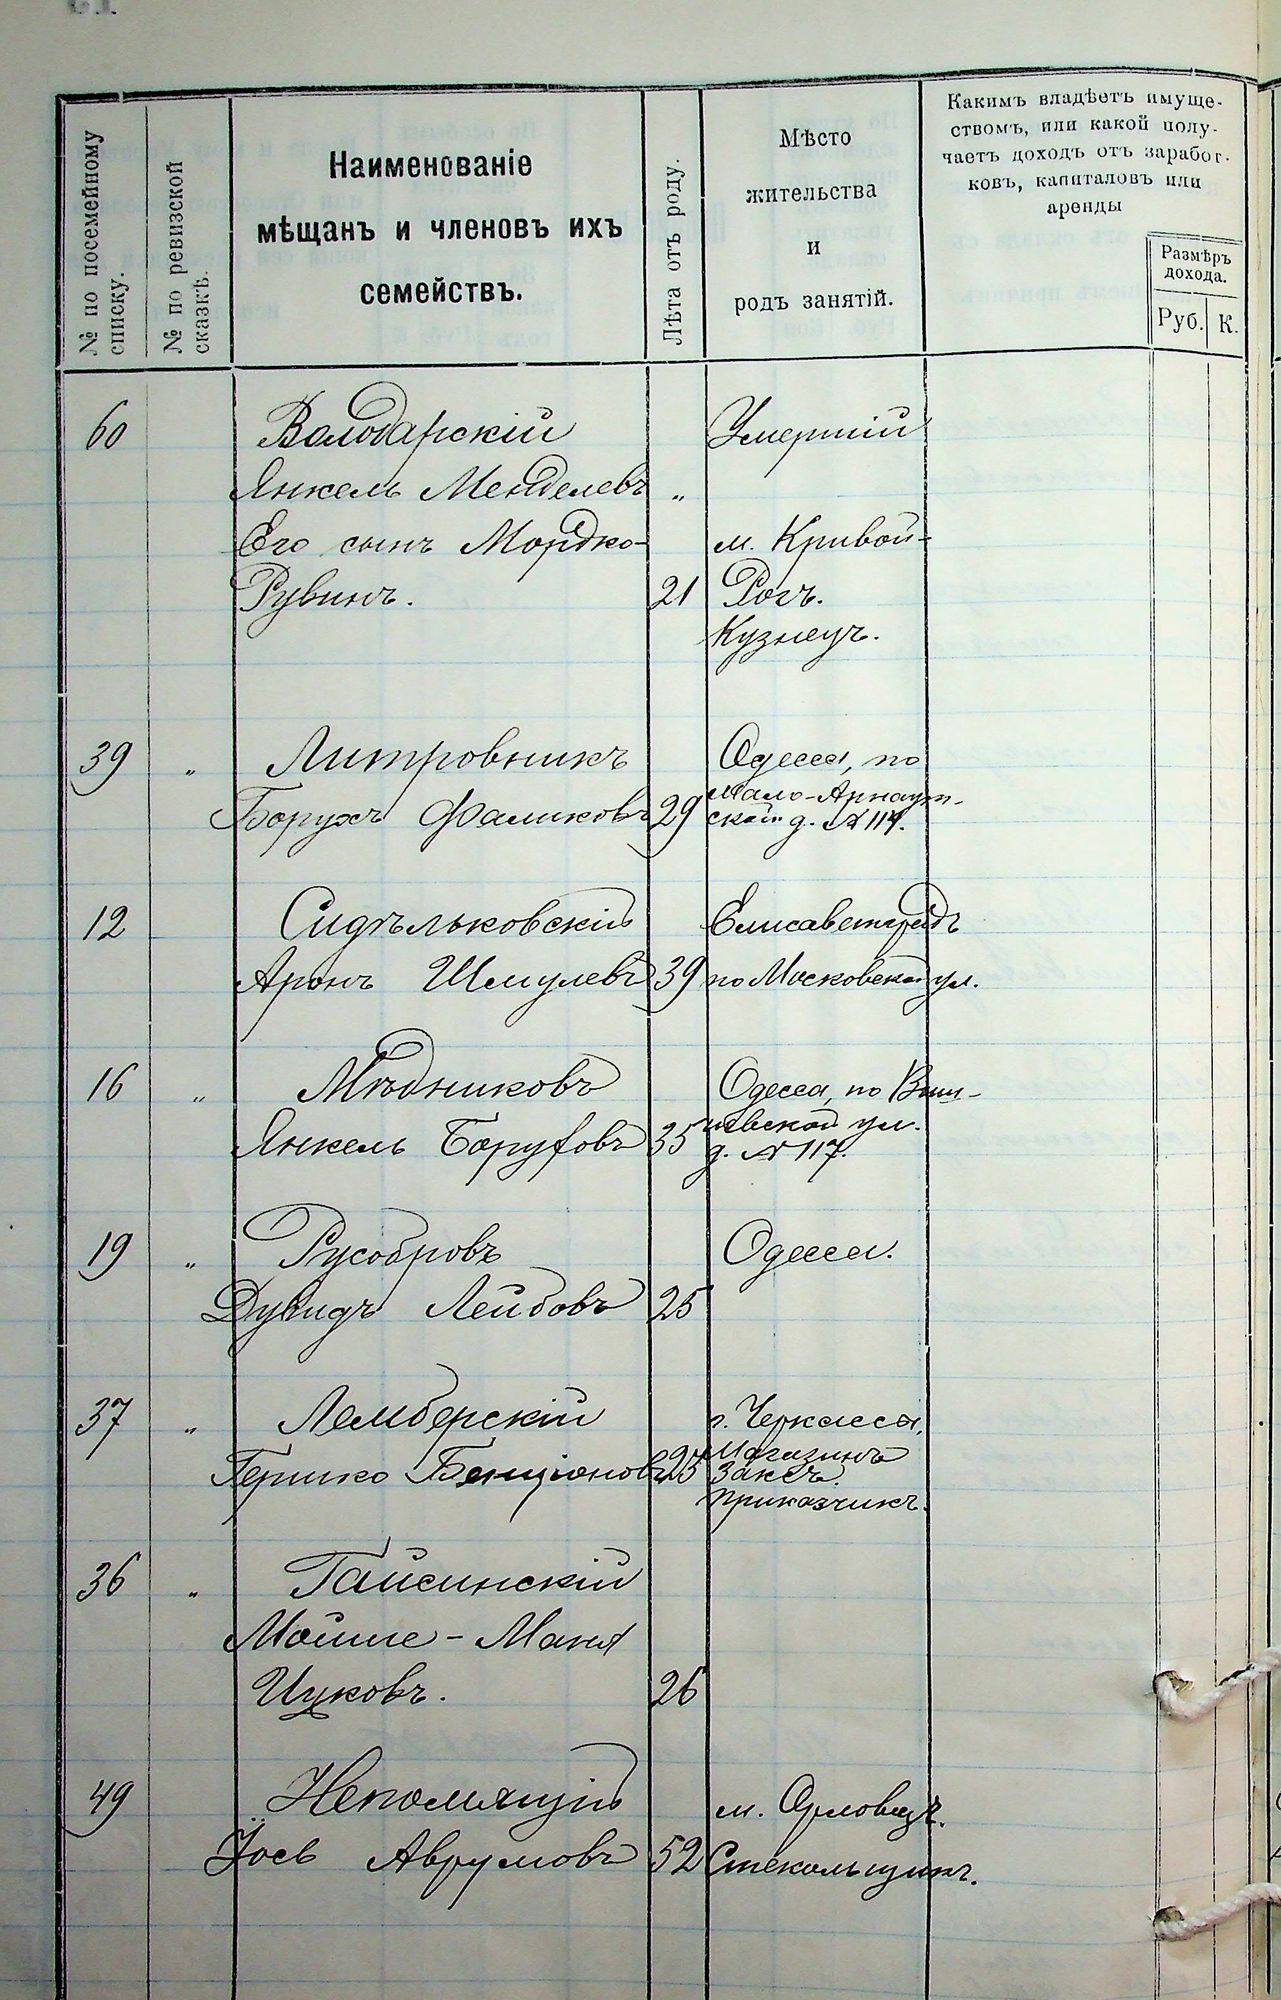 № по посемейному
списку.
№ по ревизской
сказкѣ.
Наименованіе
мѣщанъ и членовъ ихъ
семействъ.
Лѣта отъ роду.
Мѣсто
жительства
и
родъ занятій.
Какимъ владѣетъ имуще-
ствомъ, или какой полу-
чаетъ доходъ отъ заработ-
ковъ, капиталовъ или
аренды
Размѣръ
дохода.
Руб. К.
60 Володарскій Умершій
Янкель Менделевъ „
Его сынъ Мордко- м. Кривой-
Рувинъ. 21 Рогъ.
Кузнецъ.
39 „ Литровникъ Одесса, по
Мало-Арнаут-
Борухъ Фаликовъ 29 ской д. № 114.
12 Сидѣльковскій Елисаветградъ
Аронъ Шмулевъ 39 по Московской ул.
16 „ Мѣдниковъ Одесса, по
ул.
Янкель Боруховъ 35 д. № 117.
19 „ Русобровъ Одесса.
Дувидъ Лейбовъ 25
37 „ Лемберскій г. Черкассы,
Магазинъ
Гершко Бенціоновъ 25 Заксъ.
Приказчикъ.
36 „ Гайсинскій
Мойше-Маня
Ицковъ. 26
49 Непомнящій м. Орловецъ.
Іось Аврумовъ 52 Стекольщикъ.